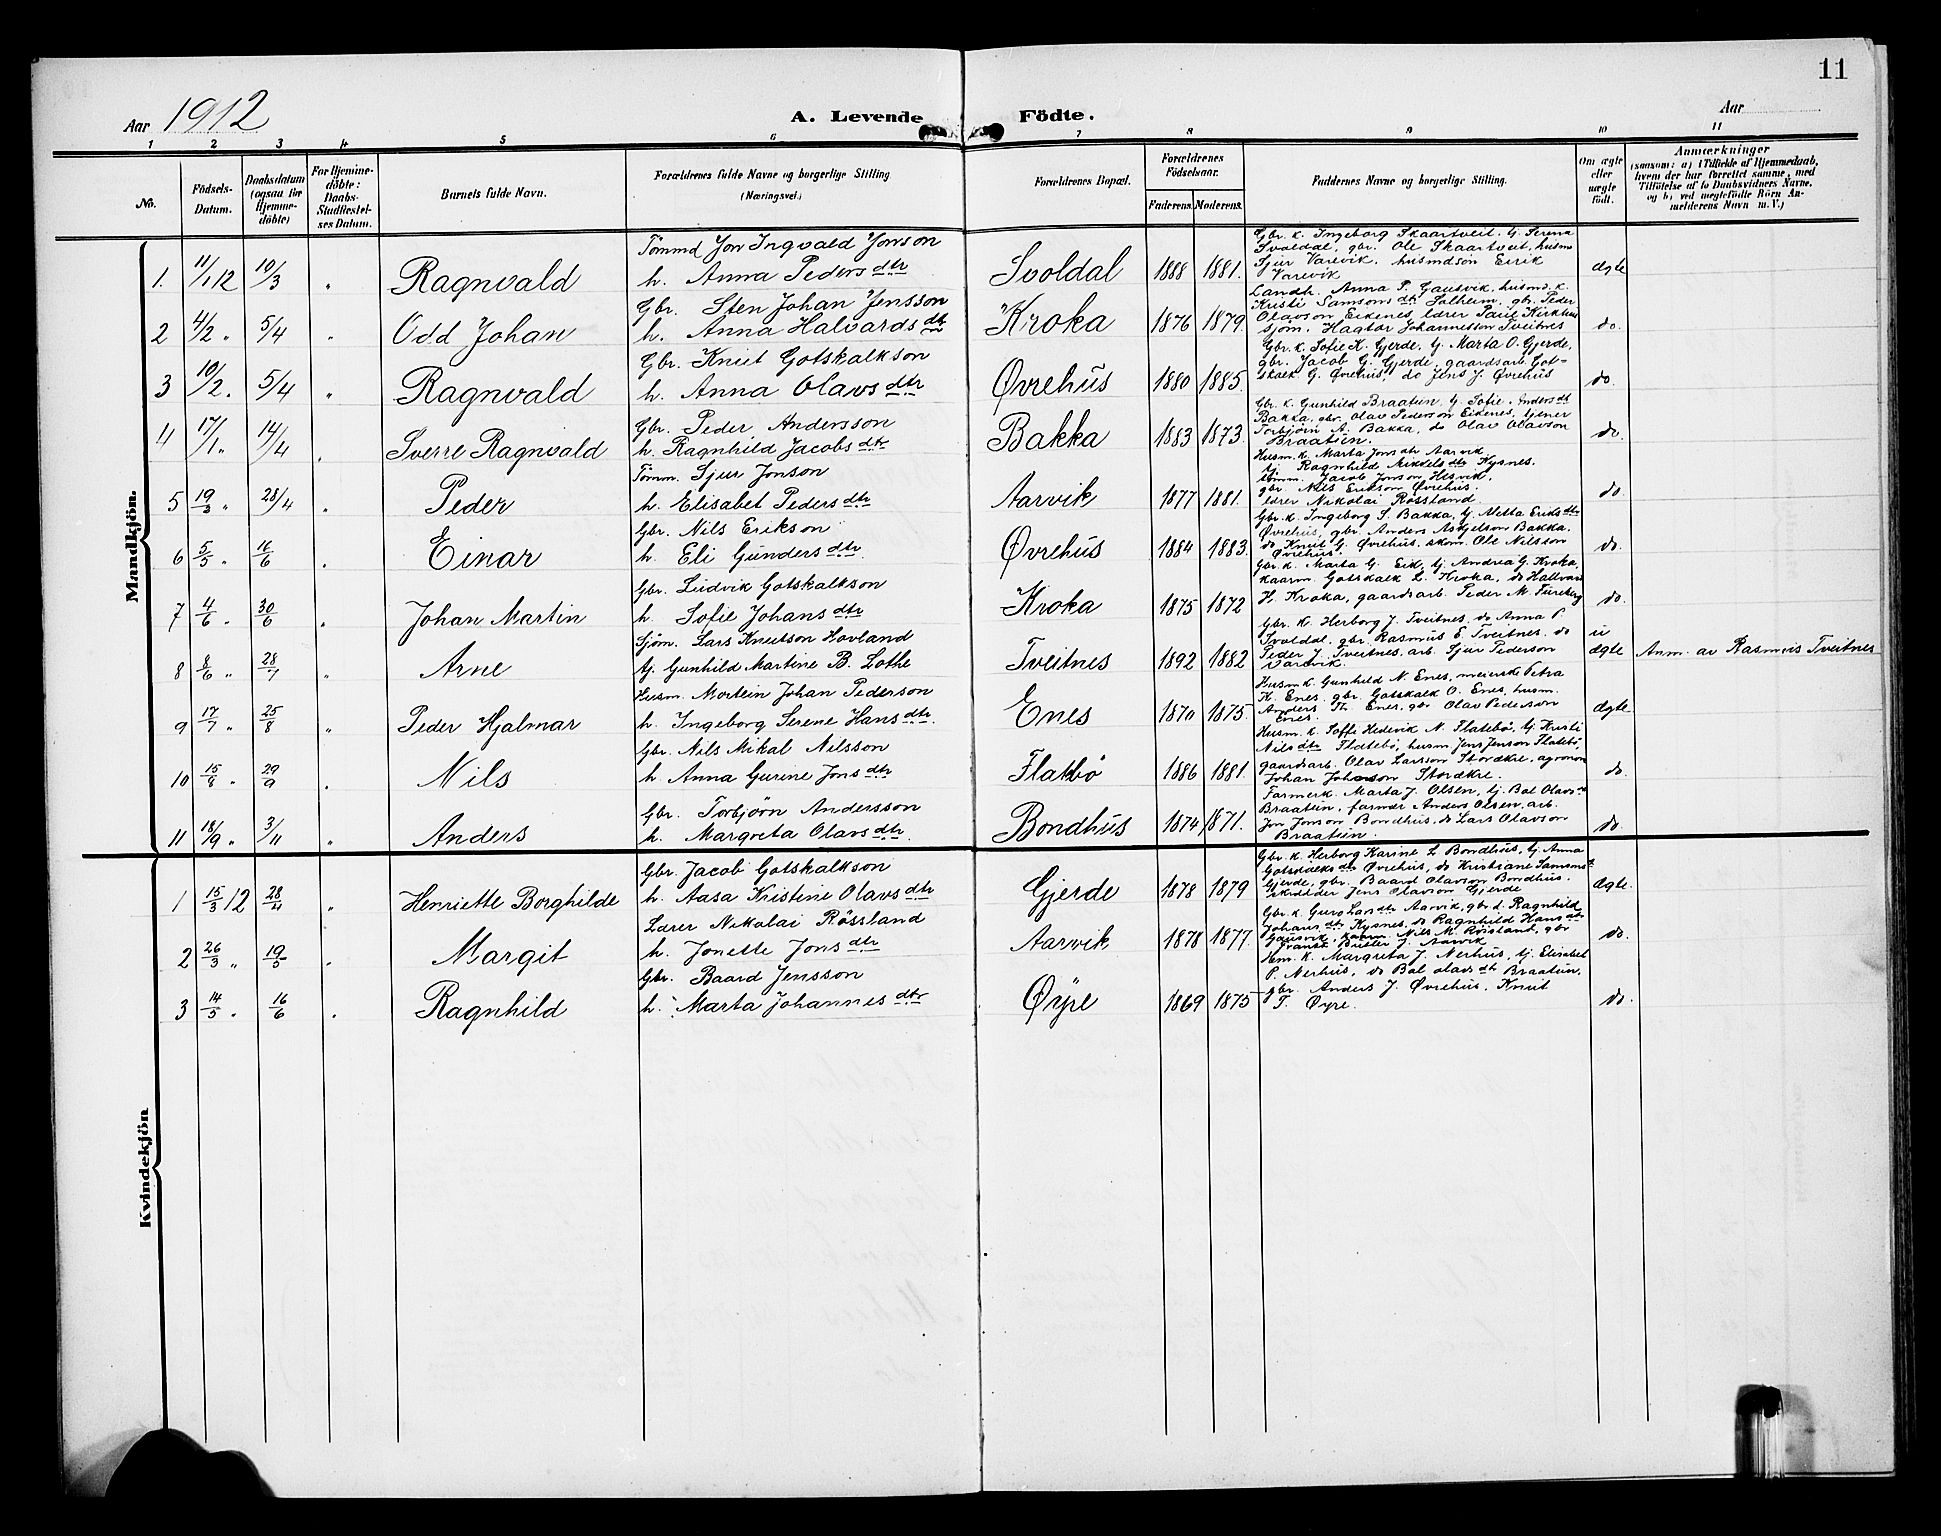 11
Aar 1912
A. Levende Födte.
Aar
1 2 3 4 5 6 7 8 9 10 11
No.
Födsels-Datum.
Daabsdatum (ogsaa for Hjemmedöbte)
For Hjemmedöbte: Daabs-Stadfæstelses Datum.
Barnets fulde Navn.
Forældrenes fulde Navne og borgerlige Stilling (Næringsvei.)
Forældrenes Bopæl.
Forældrenes Födselsaar.
Faderens. Moderens.
Faddernes Navne og borgerlige Stilling.
Om ægte eller uægte födt.
Anmærkninger
(saasom: a) i Tilfælde af Hjemmedaab, hvem der har forrettet samme, med Tilföielse af to Daabsvidners Navne, og b) ved uægtefödte Börn Anmelderens Navn m. V.)
Mandkjön.
1. 11/1 12 10/3 " Ragnvald
Tömmd Jon Ingvald Jonson
h. Anna Pedersdtr
Svoldal 1888 1881.
Gbr. k. Ingeborg Skaartveit, tj. Serena
Svoldal, gbr. Ole Skaartveit, husm
Sjur Varevik, husmdsön Eirik
Varevik
ægte
2 4/2 " 5/4 " Odd Johan
Gbr. Sten Johan Jensson
h. Anna Halvardsdtr
Kroka 1876 1879.
Landh. Anna P. Gausvik, husmd. k.
Kristi Samsonsdtr Solheim, gbr. Peder
Olavson Eikenes, lærer Paul Kirkhus
sjöm. Hagtor Johannesson Tveitnes
do.
3 10/2 " 5/4 " Ragnvald
Gbr. Knut Gotskalkson
h. Anna Olavsdtr
Øvrehus 1880 1885.
Gbr. k. Sofie K. Gjerde, tj. Marta O. Gjerde,
gbr. Jacob G. Gjerde, gaardsarb. Got-
skalk G. Øvrehus, do Jens J. Øvrehus
do.
4 17/1 " 14/4 " Sverre Ragnvald
Gbr. Peder Andersson
h. Ragnhild Jacobsdtr
Bakka 1883 1873.
Gbr. k. Gunhild Braatun, tj. Sofie Andersdt
Bakka, gbr. Olav Pederson Eikenes, tjener
Torbjörn A. Bakka, do Olav Olavson
Braatun.
do.
5 19/3 " 28/4 " Peder
Tömm. Sjur Jonson
h. Elisabet Pedersdtr
Aarvik 1877 1881.
Husm. k. Marta Jonsdtr Aarvik
tj. Ragnhild Mikkelsdtr Kysnes,
tömm. Jacob Jonson Hesvik,
gbr Nils Erikson Øvrehus,
lærer Nikolai Røssland
do.
6 5/5 " 16/6 " Einar
Gbr. Nils Erikson
h. Eli Gundersdtr
Øvrehus 1884 1883.
Gbr. k. Ingeborg S. Bakka, tj. Metta Eriksdtr
Øvrehus, gbr Anders Askjelson Bakka,
do Knut G. Øvrehus, skom. Ole Nilsson
Øvrehus.
do.
7 4/6 " 30/6 " Johan Martin
Gbr. Ludvik Gotskalkson
h. Sofie Johansdtr
Kroka 1875 1872
Gbr. k. Marta G. Eik, tj. Andrea G. Kroka,
kaarm. Gotskalk L. Kroka, do Hallvar
H. Kroka, gaardsarb. Peder M. Fureberg
do.
8 8/6 " 28/7 " Arne
Sjöm. Lars Knutson Hovland
tj. Gunhild Martine B. Lothe
Tveitnes 1892 1882
Gbr. k. Herborg J. Tveitnes, do Anna P.
Svoldal, gbr. Rasmus E. Tveitnes, do
Peder J. Tveitnes, arb. Sjur Pederson
Varevik.
uægte
Anm. av Rasmus Tveitnes
9 17/7 " 25/8 " Peder Hjalmar
Husm. Mortein Johan Pederson
h. Ingeborg Serene Hansdtr
Enes 1870 1875
Husm k. Gunhild N. Enes, meierske Petra
K. Enes, gbr. Gotskalk O. Enes, husm.
Anders Th. Enes, gbr Olav Pederson
Enes.
Ægte
10 15/8 " 29/9 " Nils
Gbr. Nils Mikal Nilsson
h. Anna Gurine Jonsdtr
Flatebö 1886 1881.
Husm. k. Soffi Hedevik N. Flatebö, tj. Kristi
Nilsdtr Flatebö, husm Jens Jenson Flatebö,
gaardsarb. Olav Larsson Storækre, agronom
Johan Johanson Storækre.
do.
11 18/9 " 3/11 " Anders
Gbr. Torbjörn Andersson
h. Margreta Olavsdtr
Bondhus 1874 1871.
Farmerk. Marta J. Olsen, tj. Bol Olavsdtr
Braatun, farmer Anders Olsen, arb.
Jon Jonson Bondhus, do Lars Olavson
Braatun.
do.
Kvindekjön
1 15/3 12 28/4 " Henriette Borghilde
Gbr. Jacob Gotskalkson
h. Aasa Kristine Olavsdtr
Gjerde 1878 1879
Gbr. k. Herborg Karine L. Bondhus, tj. Anna
Gotskalksdtr Øvrehus, do Kristiane Samsonsdt
Gjerde, gbr. Baard Olavson Bondhus.
Jens Olavson Gjerde
Ægte.
2 26/3 " 19/5 " Margit
Lærer Nikolai Røssland
h. Jonette Jonsdtr
Aarvik 1878 1877.
Gbr. k. Guro Larsdtr Aarvik, gbr d. Ragnhild
Johansdtr Kysnes, do Ragnhild Hansdtr
Gausvik, kaarm. Nils M. Røssland, gbr
J. Aarvik
do.
3 14/5 " 16/6 " Ragnhild
Gbr. Baard Jensson
h. Marta Johannesdtr
Øyre 1869 1875
k. Margreta J. Nerhus, tj. Elisabet
P. Nerhus, do Bol Olavsdtr Braatun,
gbr. Anders J. Øvrehus, Knut
T. Øyre.
do.